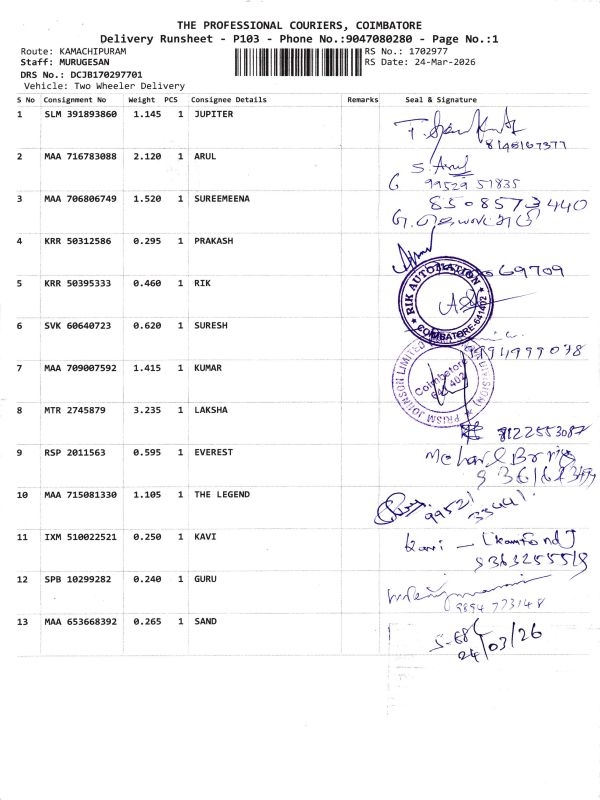 THE PROFESSIONAL COURIERS, COIMBATORE
Delivery Runsheet - P103 - Phone No.:9047080280 - Page No.:1
Route: KAMACHIPURAM RS No.: 1702977
Staff: MURUGESAN RS Date: 24-Mar-2026
DRS No.: DCJB170297701
Vehicle: Two Wheeler Delivery
S No Consignment No Weight PCS Consignee Details Remarks Seal & Signature
1 SLM 391893860 1.145 1 JUPITER
8148167377
2 MAA 716783088 2.120 1 ARUL S. Arul
99529 51835
3 MAA 706806749 1.520 1 SUREEMEENA 8508573440
4 KRR 50312586 0.295 1 PRAKASH
69709
5 KRR 50395333 0.460 1 RIK
RIK AUTOMATION
COIMBATORE-641402
6 SVK 60640723 0.620 1 SURESH
9994999078
7 MAA 709007592 1.415 1 KUMAR
PRISM JOHNSON LIMITED
DIVISION
Coimbatore
641 402
8 MTR 2745879 3.235 1 LAKSHA
8122553087
9 RSP 2011563 0.595 1 EVEREST
10 MAA 715081330 1.105 1 THE LEGEND
99521
33441
11 IXM 510022521 0.250 1 KAVI
Kavi
12 SPB 10299282 0.240 1 GURU
9894 773148
13 MAA 653668392 0.265 1 SAND
24/03/26